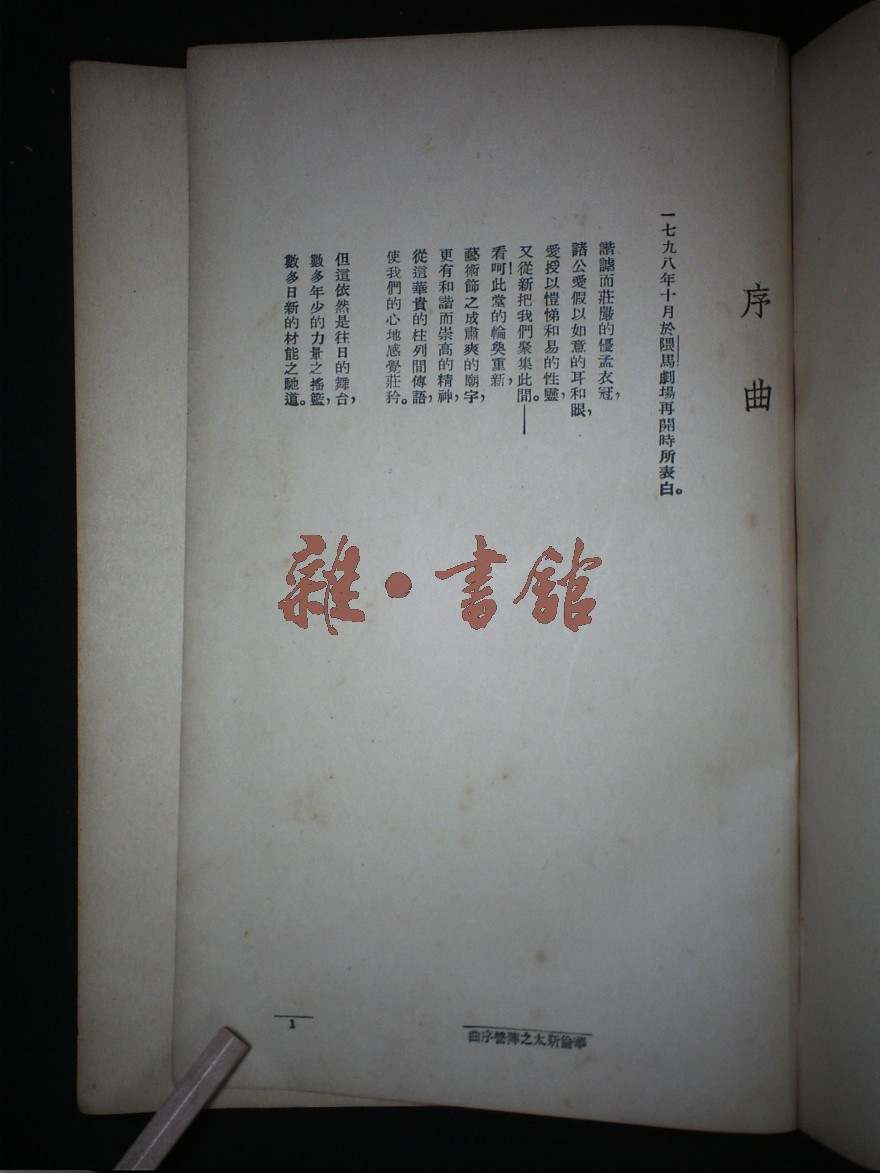 序曲
一七九八年十月於隈馬劇場再開時所表白。
諧謔而莊嚴的優孟衣冠，
諸公愛假以如意的耳和眼，
愛授以愷悌和易的性靈，
又從新把我們聚集此間。——
看呵！此堂的輪奐重新，
藝術飾之成肅爽的廟宇，
更有和諧而崇高的精神，
從這華貴的柱列間傳語，
使我們的心地感覺莊矜。
但這依然是往日的舞台，
數多年少的力量之搖籃，
數多日新的材能之馳道。
雜•書館
華倫斯太之陣營・序曲
1